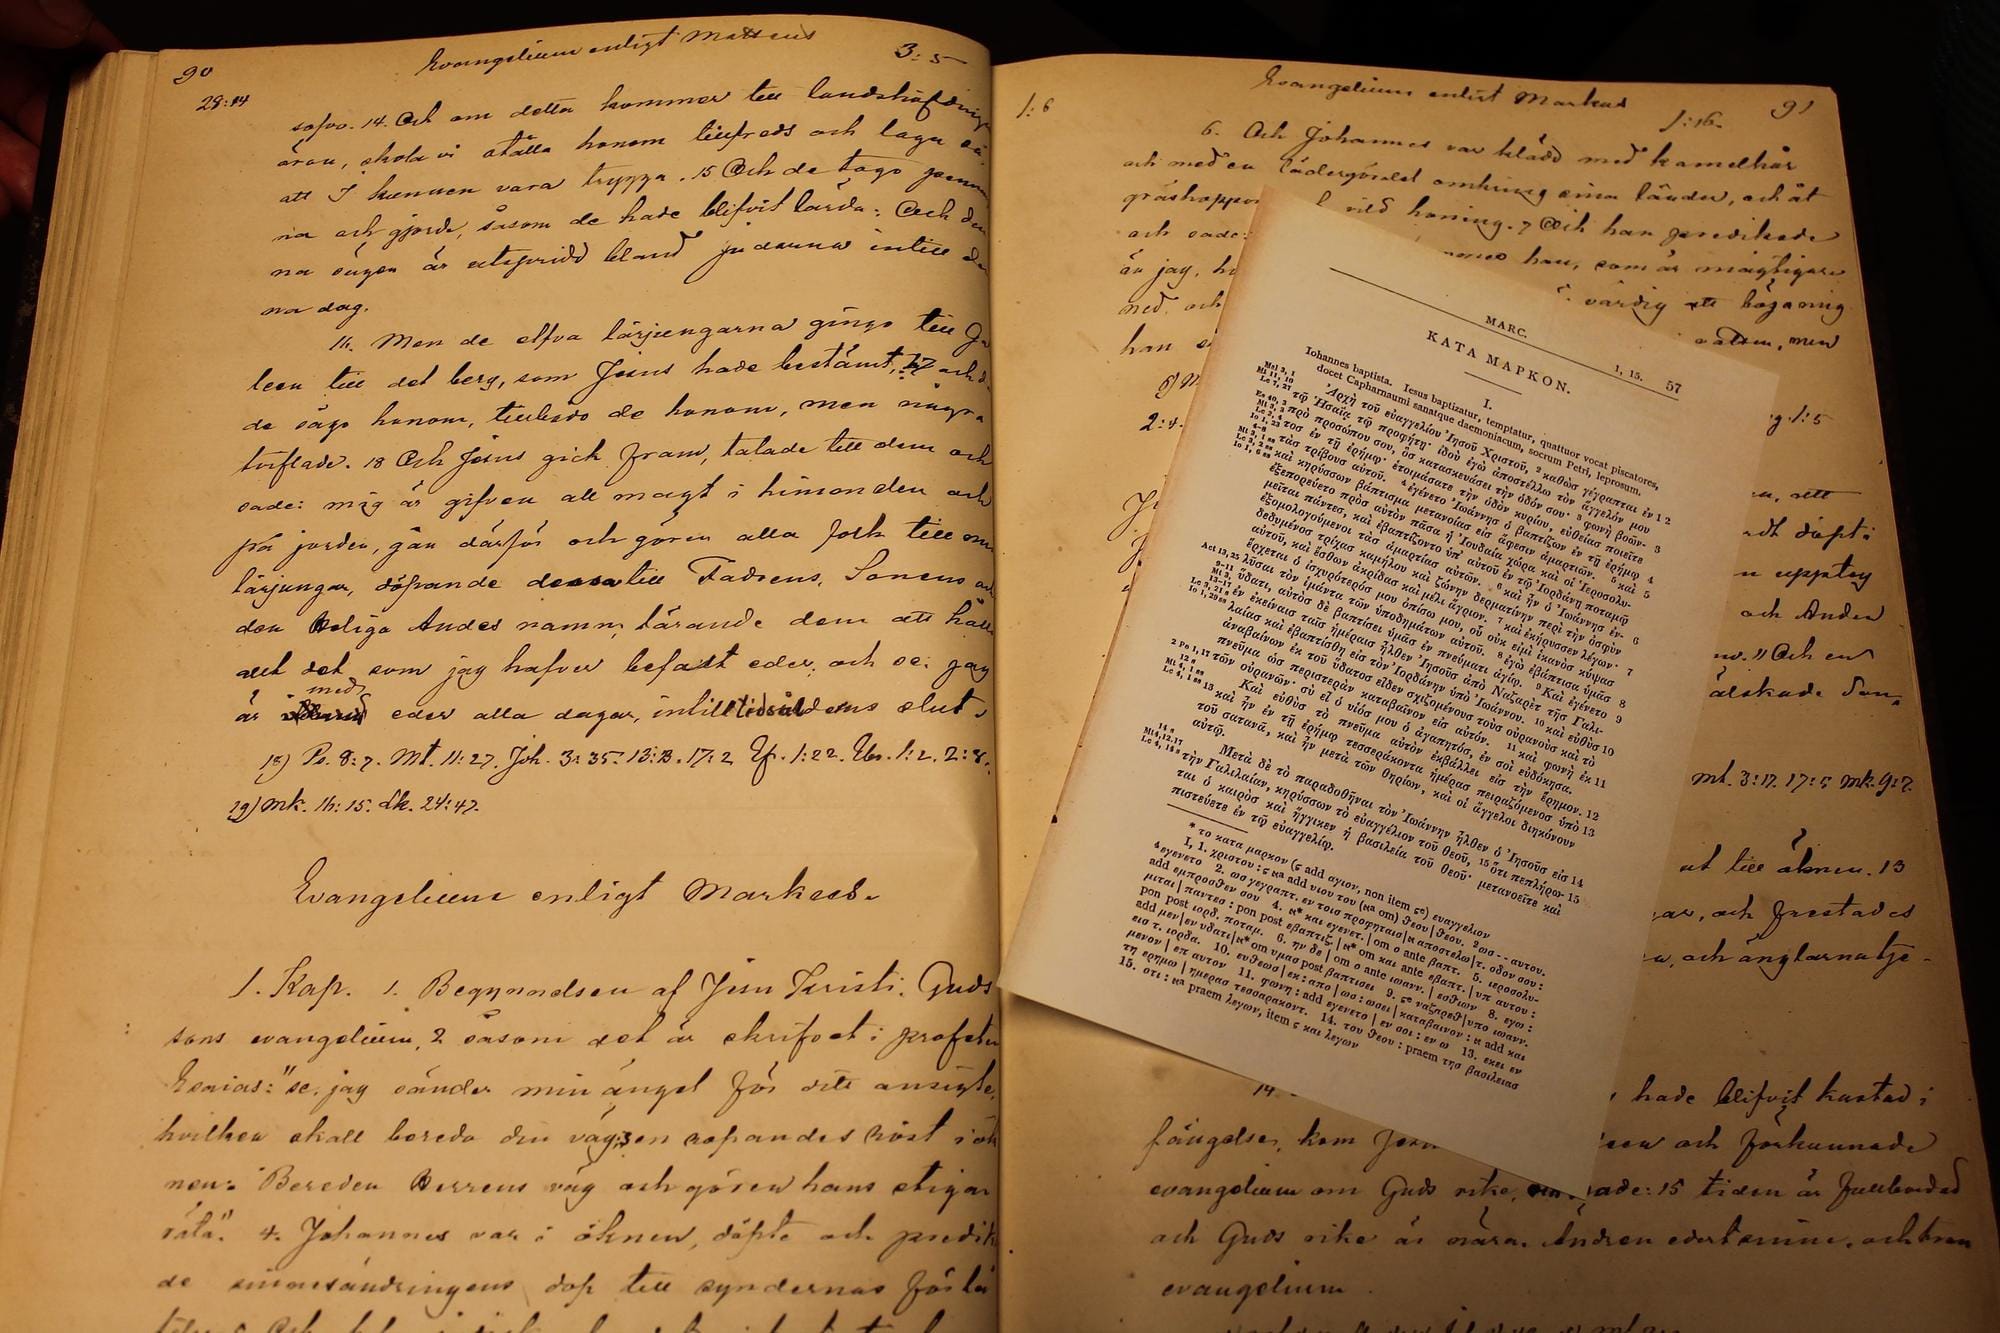 90 Evangelium enligt Matteus 3:5
28:14
sofvo. 14. Och om detta kommer till landshöfdinge
öron, skola vi ställa honom tillfreds och laga så,
att I kunnen vara trygga. 15 Och de togo penni
na och gjorde, såsom de hade blifvit lärda. Och den
na sägen är utspridd bland judarna intill den
na dag.
16. Men de elfva lärjungarna gingo till Ga
leen till det berg, som Jesus hade bestämt, 17 och d
de sågo honom, tillbådo de honom, men några
tviflade. 18 Och Jesus gick fram, talade till dem och
sade: mig är gifven all magt i himmelen och
på jorden, gån därför och gören alla folk till mi
lärjungar, döpande dessa till Fadrens, Sonens och
den Heliga Andes namn, lärande dem att hålla
allt det som jag hafver befallt eder, och se, jag
är med eder alla dagar, intill tidsålderns slut.
18) Ps. 8:7. Mt. 11:27. Joh. 3:35. 13:3. 17:2 Ef. 1:22. Ebr. 1:2. 2:8.
19) Mk. 16:15. Lk. 24:47.
Evangelium enligt Markus.
1. Kap. 1. Begynnelsen af Jesu Kristi, Guds
sons evangelium, 2 såsom det är skrifvet i profeten
Esaias: "se, jag sänder min ängel för ditt ansigte,
hvilken skall bereda din väg; 3 en ropandes röst i ök
nen: Bereden Herrens väg och gören hans stigar
räta". 4. Johannes var i öknen, döpte och predik
de sinnesändringens dop till syndernas förlå
Evangelium enligt Markus 91
1:6 1:16.
6. Och Johannes var klädd med kamelhår
och med en lädergördel omkring sina länder, och åt
gräshoppor vild honing. 7 Och han predikade
och sade: han, som är mägtigare
än jag, värdig att böja mig
ned, och vatten, men
han
2:4. 1:5
döpt i
upptog
och Anden
11 Och en
älskade Son,
mt. 3:17. 17:5 mk. 9:7.
ut till öknen. 13
och frestades
och änglarna tje-
14 hade blifvit kastad i
fängelse, kom och förkunnade
evangelium om Guds rike, sade: 15 tiden är fullbordad
och Guds rike är nära. Ändren edert sinne, och tron
evangelium.
MARC. 1, 15. 57
ΚΑΤΑ ΜΑΡΚΟΝ.
I.
Iohannes baptista. Iesus baptizatur, temptatur, quattuor vocat piscatores,
docet Capharnaumi sanatque daemoniacum, socrum Petri, leprosum.
Ἀρχὴ τοῦ εὐαγγελίου Ἰησοῦ Χριστοῦ, 2 καθὼς γέγραπται ἐν 1 2
τῷ Ἡσαΐᾳ τῷ προφήτῃ· ἰδοὺ ἐγὼ ἀποστέλλω τὸν ἄγγελόν μου
πρὸ προσώπου σου, ὃς κατασκευάσει τὴν ὁδόν σου· 3 φωνὴ βοῶν- 3
τοσ ἐν τῇ ἐρήμῳ· ἑτοιμάσατε τὴν ὁδὸν κυρίου, εὐθείας ποιεῖτε
τὰσ τρίβους αὐτοῦ. 4 ἐγένετο Ἰωάννησ ὁ βαπτίζων ἐν τῇ ἐρήμῳ 4
καὶ κηρύσσων βάπτισμα μετανοίασ εἰσ ἄφεσιν ἁμαρτιῶν. 5 καὶ 5
ἐξεπορεύετο πρὸσ αὐτὸν πᾶσα ἡ Ἰουδαία χώρα καὶ οἱ Ἱεροσολυ-
μεῖται πάντεσ, καὶ ἐβαπτίζοντο ὑπ' αὐτοῦ ἐν τῷ Ἰορδάνῃ ποταμῷ
ἐξομολογούμενοι τὰσ ἁμαρτίασ αὐτῶν. 6 καὶ ἦν ὁ Ἰωάννησ ἐν- 6
δεδυμένοσ τρίχασ καμήλου καὶ ζώνην δερματίνην περὶ τὴν ὀσφὺν
αὐτοῦ, καὶ ἔσθων ἀκρίδασ καὶ μέλι ἄγριον. 7 καὶ ἐκήρυσσεν λέγων· 7
ἔρχεται ὁ ἰσχυρότερόσ μου ὀπίσω μου, οὗ οὐκ εἰμὶ ἱκανὸσ κύψασ
λῦσαι τὸν ἱμάντα τῶν ὑποδημάτων αὐτοῦ. 8 ἐγὼ ἐβάπτισα ὑμᾶσ 8
ὕδατι, αὐτὸσ δὲ βαπτίσει ὑμᾶσ ἐν πνεύματι ἁγίῳ. 9 Καὶ ἐγένετο 9
ἐν ἐκείναισ ταῖσ ἡμέραισ ἦλθεν Ἰησοῦσ ἀπὸ Ναζαρὲτ τῆσ Γαλι-
λαίασ καὶ ἐβαπτίσθη εἰσ τὸν Ἰορδάνην ὑπὸ Ἰωάννου. 10 καὶ εὐθὺσ 10
ἀναβαίνων ἐκ τοῦ ὕδατοσ εἶδεν σχιζομένουσ τοὺσ οὐρανοὺσ καὶ τὸ
πνεῦμα ὡσ περιστερὰν καταβαῖνον εἰσ αὐτόν. 11 καὶ φωνὴ ἐκ 11
τῶν οὐρανῶν· σὺ εἶ ὁ υἱόσ μου ὁ ἀγαπητόσ, ἐν σοὶ εὐδόκησα.
Καὶ εὐθὺσ τὸ πνεῦμα αὐτὸν ἐκβάλλει εἰσ τὴν ἔρημον. 12
13 καὶ ἦν ἐν τῇ ἐρήμῳ τεσσεράκοντα ἡμέρασ πειραζόμενοσ ὑπὸ 13
τοῦ σατανᾶ, καὶ ἦν μετὰ τῶν θηρίων, καὶ οἱ ἄγγελοι διηκόνουν
αὐτῷ.
Μετὰ δὲ τὸ παραδοθῆναι τὸν Ἰωάννην ἦλθεν ὁ Ἰησοῦσ εἰσ 14
τὴν Γαλιλαίαν, κηρύσσων τὸ εὐαγγέλιον τοῦ θεοῦ, 15 ὅτι πεπλήρω- 15
ται ὁ καιρὸσ καὶ ἤγγικεν ἡ βασιλεία τοῦ θεοῦ· μετανοεῖτε καὶ
πιστεύετε ἐν τῷ εὐαγγελίῳ.
* το κατα μαρκον (ς add αγιον, non item ςᵉ) ευαγγελιον
I, 1. χριστου: ς אᵃ add υιου του (אᵃ om) θεου | θεου. 2 ωσ - - αυτου.
4 εγενετο 2. ωσ γεγραπτ. εν τοισ προφηταισ | א αποστελω | τ. οδον σου:
add εμπροσθεν σου 4. א* και εγενετ. | om ο ante βαπτ. 5. ιεροσολυ-
μιται | παντεσ: pon post εβαπτιζ. | א* om και ante εβαπτ. | υπ αυτου:
pon post ιορδ. ποταμ. 6. ην δε | om ο ante ιωανν. | εσθιων 8. εγω:
add μεν | εν υδατι | א* om υμασ post βαπτισει 9. ςᵉ ναζαρεθ | υπο ιωανν.
εισ τ. ιορδα. 10. ευθεωσ | εκ: απο | ωσ: ωσει | καταβαινον: א add και
μενον | επ αυτον 11. φωνη: add εγενετο | εν σοι: εν ω 13. εκει εν
τη ερημω | ημερασ τεσσαρακοντ. 14. του θεου: praem τησ βασιλειασ
15. οτι: אᵃ praem λεγων, item ς και λεγων